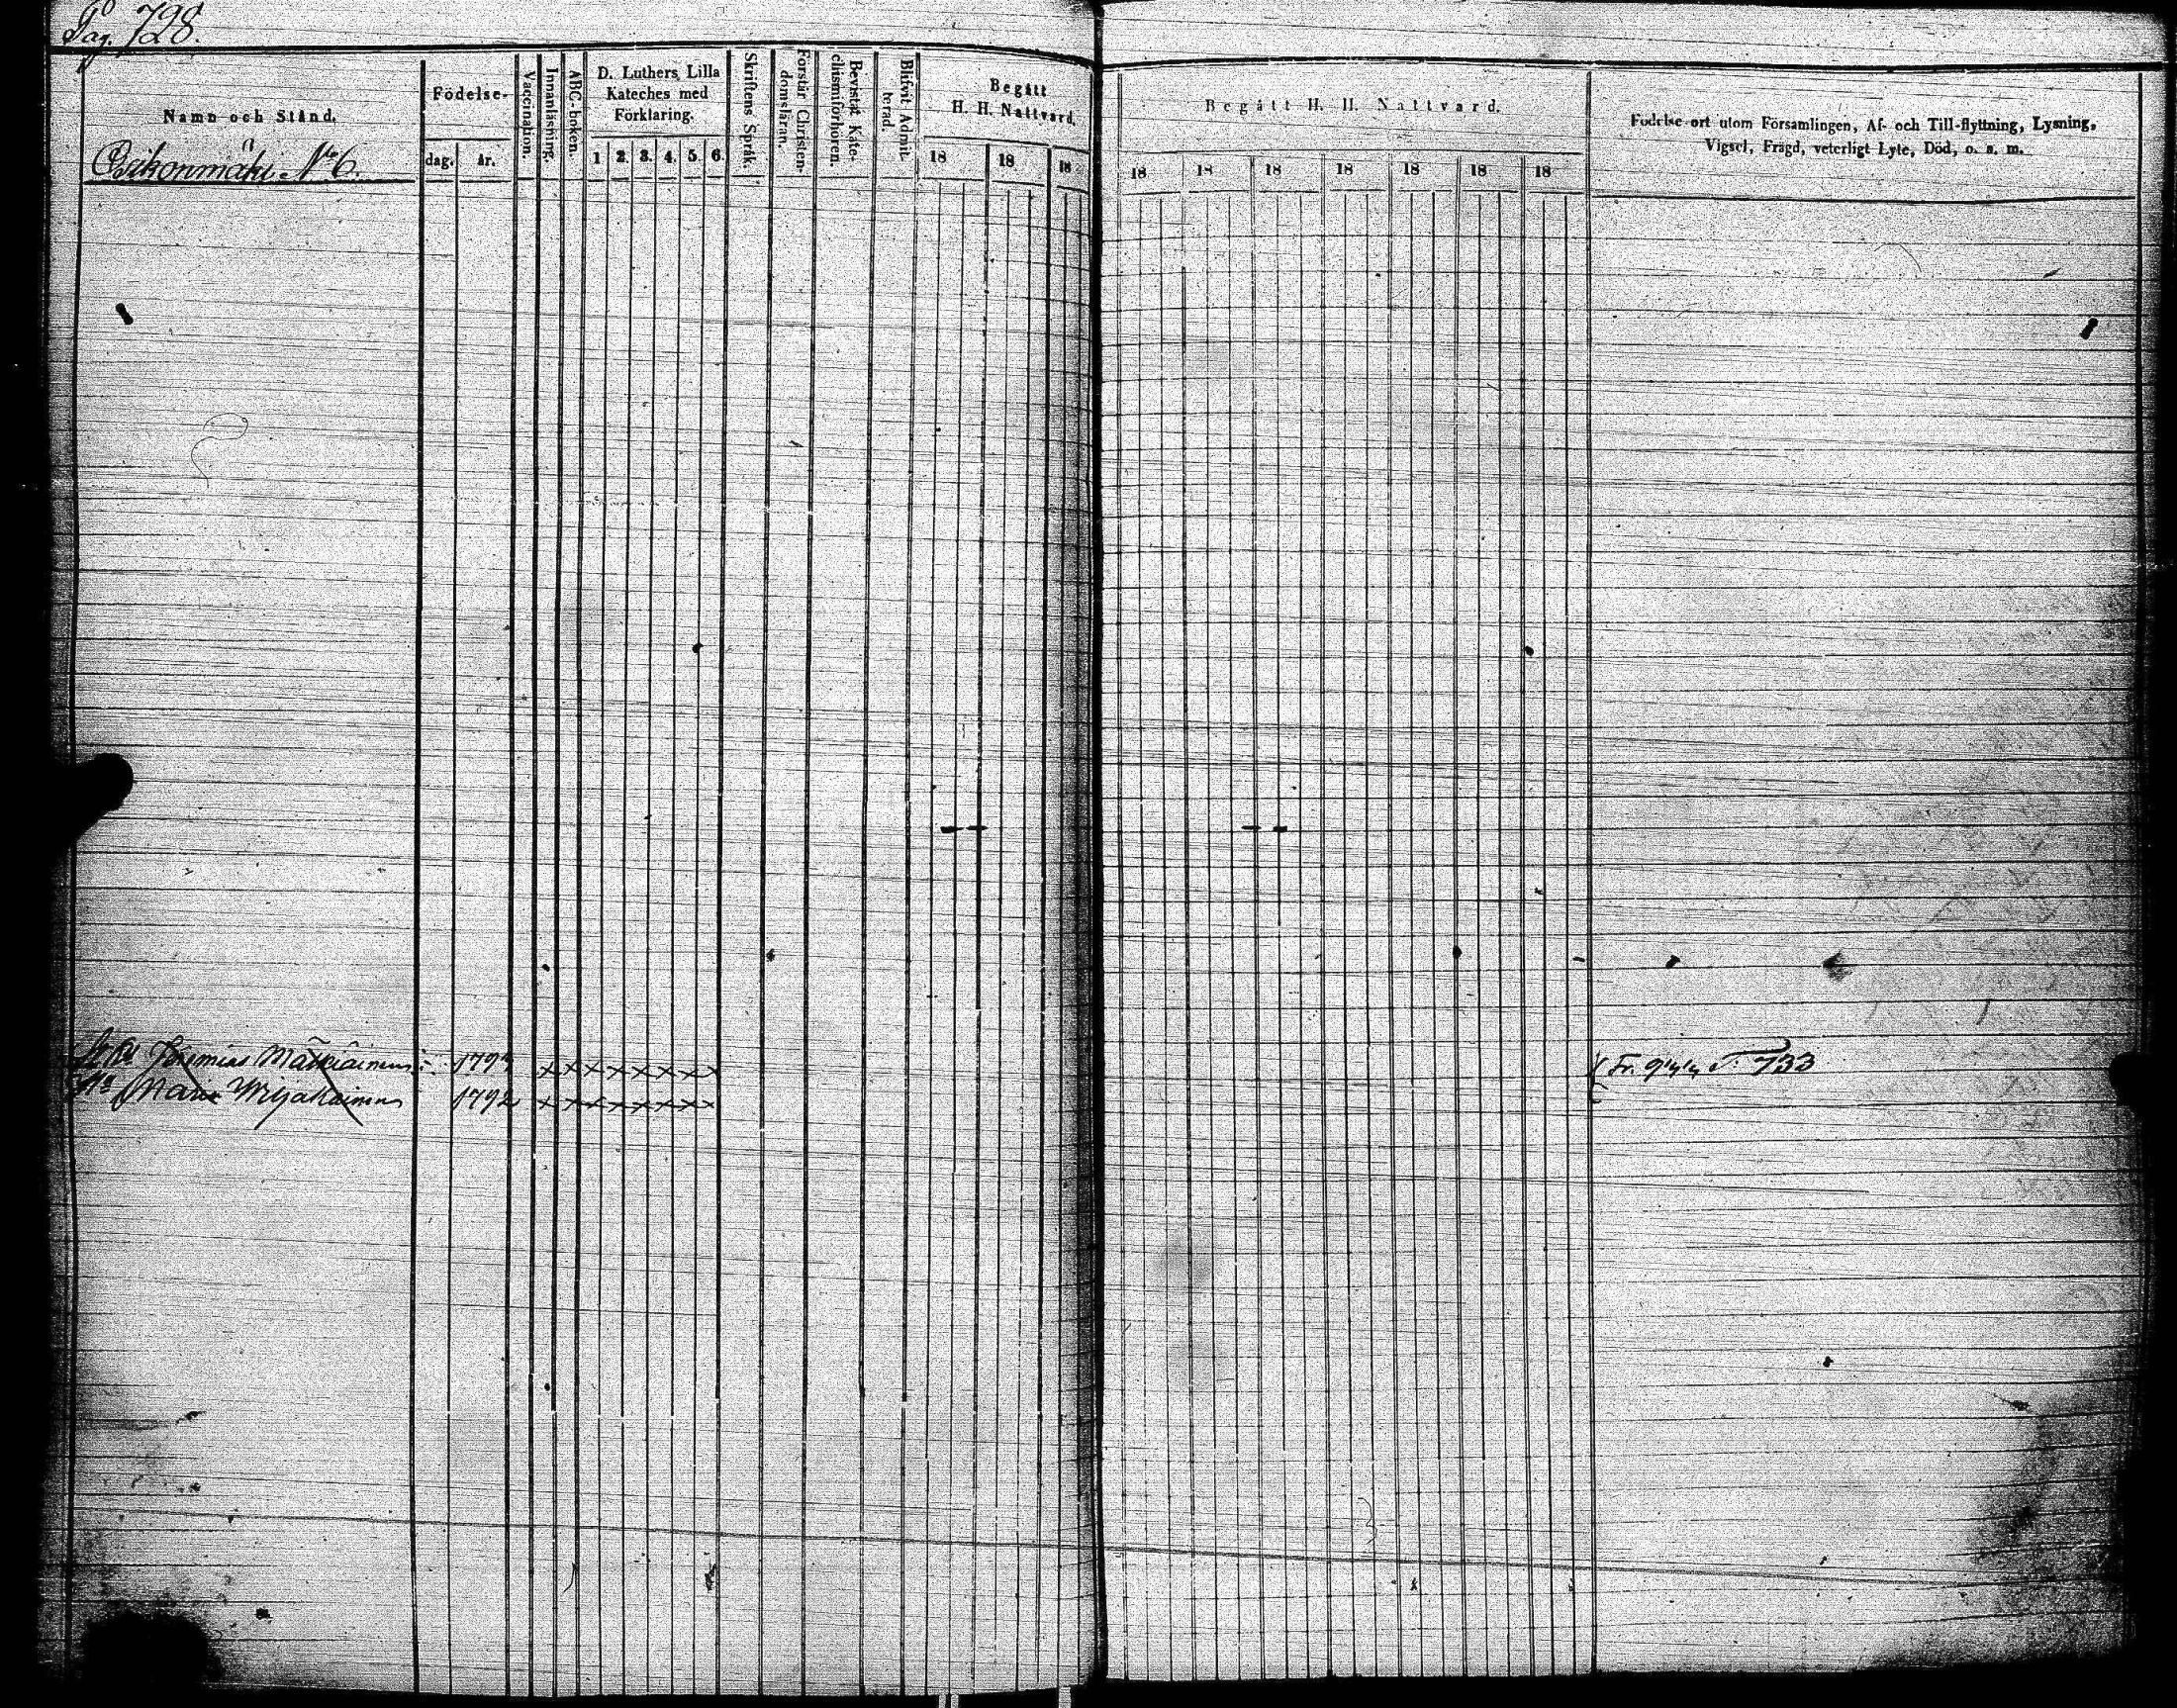 Pag. 728.
Namn och Stånd.
Födelse-
dag.
år.
Vaccination.
Innanläsning.
ABC-boken.
D. Luthers Lilla
Kateches med
Förklaring.
1 2. 3. 4. 5. 6.
Skriftens Språk.
Förstår Christen-
domsläran.
Bevistat Kate-
chismiförhören.
Blifvit Admit-
terad.
Begått
H. H. Nattvard.
18 18 18
Begått H. H. Nattvard.
18 18 18 18 18 18 18
Födelse-ort utom Församlingen, Af- och Till-flyttning, Lysning,
Vigsel, Frägd, veterligt Lyte, Död, o. s. m.
No 6.
Jeremias 179
Maria 1792
Fr. 733